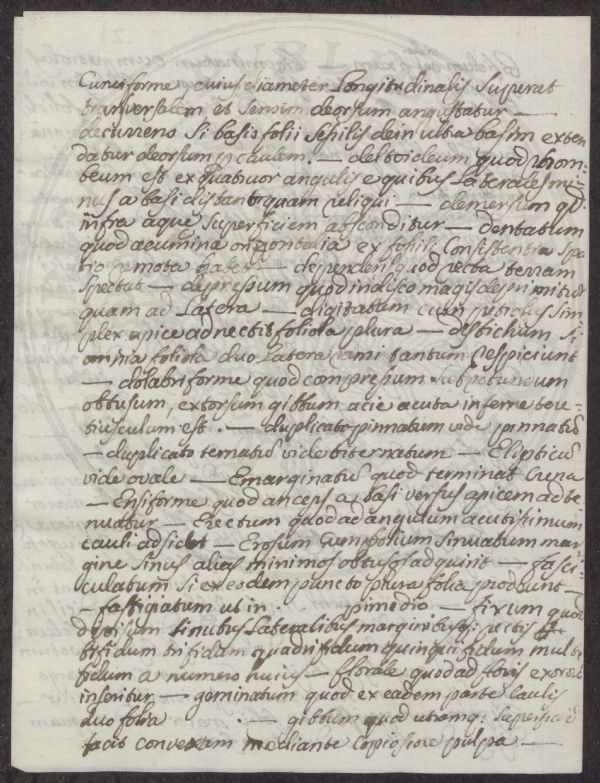 Cuneiforme, cuius diameter Longitudinalis Superat
transversalem et Sensim deorsum angustatur —
decurrens Si basis folii Sessilis dein ultra basim exten
datur deorsum p caulem. — deltoideum quod Rhom-
beum est ex quatuor angulis e quibus Laterales mi-
nus a basi distant quam reliqui — demersum qd
infra aque Superficiem absconditur — dentatum
quod acumina orizontalia ex folii Consistentia Spa
tio remota habet — dependens quod recta terram
Spectat — depressum quod in disco magis deprimitur
quam ad Latera — digitatum cum petiolus Sim
plex apice adnectit foliola plura — distichum Si
omnia foliola duo Latera rami tantum respiciunt
— dolabriforme quod compressum Subrotundum
obtusum, extorsum gibbum acie acuta inferne tere-
tiusculum est. — duplicato pinnatum vide pinnatum
— duplicato ternatum vide biternatum — Elipticum
vide ovale — Emarginatum quod terminat Crena
— Ensiforme quod anceps a basi versus apicem atte
nuatur — Erectum quod ad angulum acutissimum
cauli adsidet — Erosum Cum folium Sinuatum mar
gine Sinus alias minimos obtusos adquirit — fasci
culatum Si ex eodem puncto plura folia prodeunt —
— fastigiatum ut in pimedio — fixum quod
divisum Sinubus Lateralibus marginibusq; rectis
bifidum trifidum quadrifidum quinquifidum multi
fidum a numero huius — florale quod ad floris exorti
inseritur — geminatum quod ex eadem parte Caulis
duo folia — gibbum quod utramq; Superficiem
facit convexam mediante copiosiore pulpa —